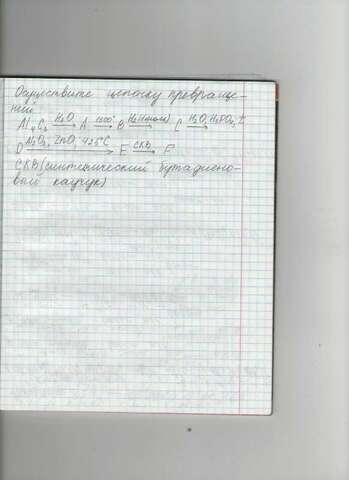 Осуществите цепочку превраще-
ний
Al₄C₃ —H₂O→ A —1500°→ B —H₂(1моль)→ C —H₂O, H₃PO₄, t→
D —Al₂O₃, ZnO, 425°C→ E —СКВ→ F
СКВ (синтетический бутадиено-
вый каучук)